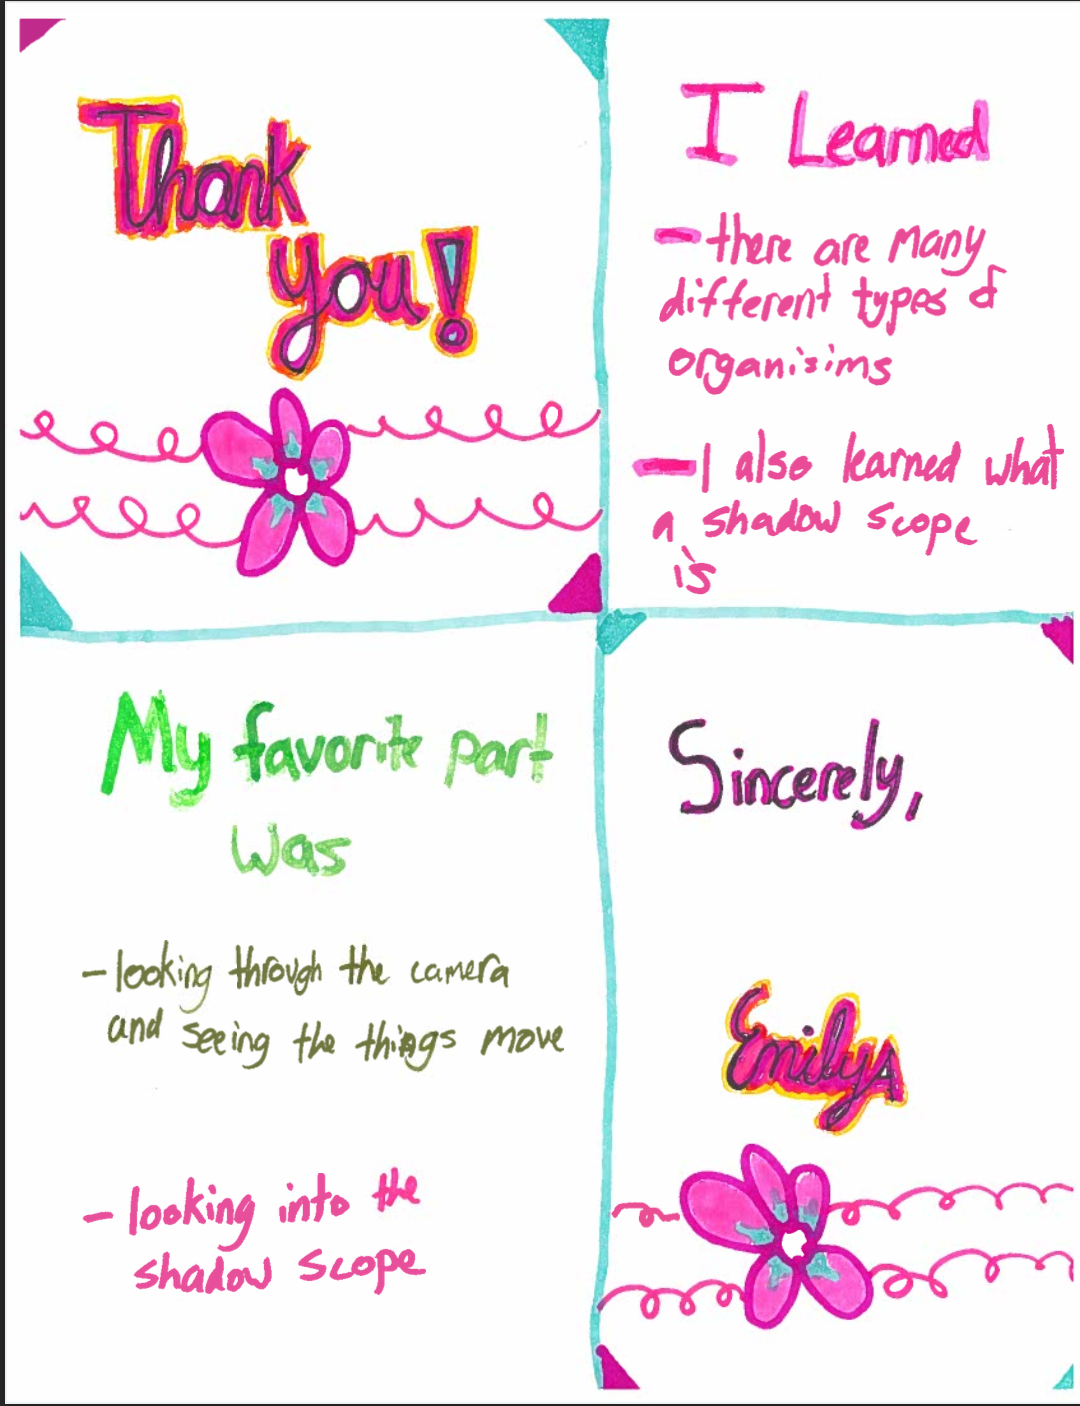 Thank
you!
I Learned
- there are many
different types of
organisims
- I also learned what
a shadow scope
is
My favorite part
was
- looking through the camera
and seeing the things move
- looking into the
shadow scope
Sincerely,
Emily A